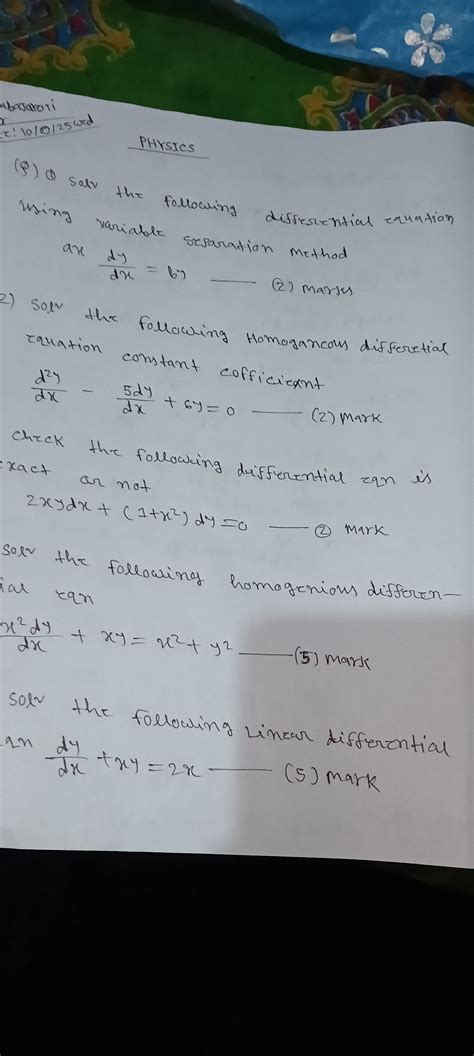 PHYSICS
(φ) ① solv the following differential equation
using variable separation method
ax dy/dx = by —— (2) marks
2) solv the following Homoganeous differetial
equation constant cofficient
d²y/dx - 5dy/dx + 6y = 0 —— (2) mark
check the following differential eqn is
exact or not
2xydx + (1+x²) dy = 0 —— ② mark
solv the following homogenious differen-
ial eqn
x²dy/dx + xy = x² + y² —— (5) mark
solv the following Linear differential
dy/dx + xy = 2x —— (5) mark